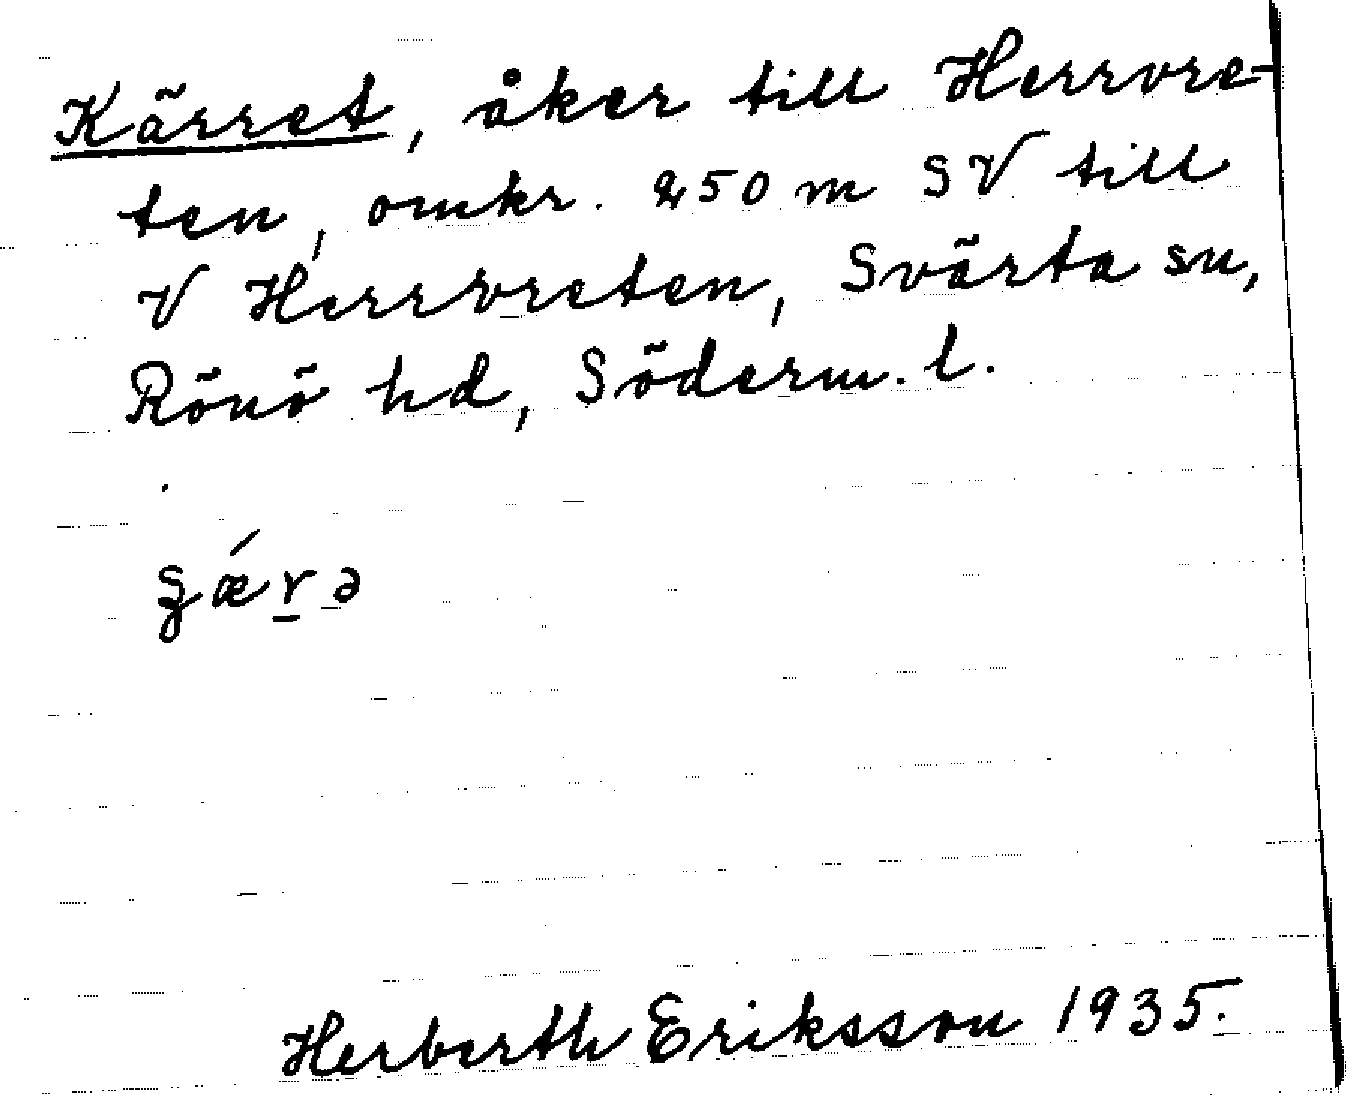 Kärret, åker till Herrvre-
ten, omkr. 250 m SV till
V Herrvreten, Svärta sn,
Rönö hd, Söderm. l.
ʂǽr̲ə
Herberth Eriksson 1935.